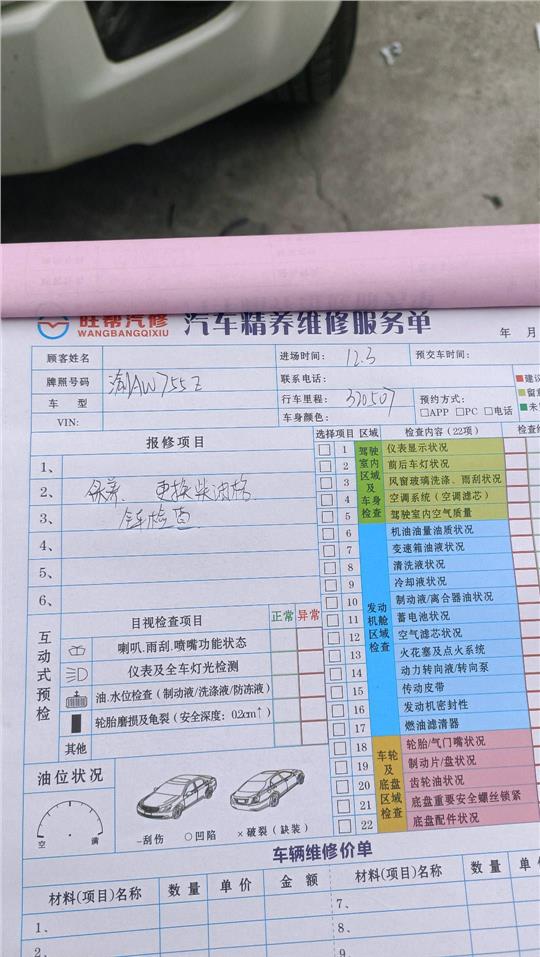 旺帮汽修 汽车精养维修服务单
WANGBANGQIXIU
年 月
顾客姓名 进场时间: 12.3 预交车时间:
牌照号码 AW755Z 联系电话:
车 型 行车里程: 370507 预约方式:
VIN: 车身颜色: □APP □PC □电话
报修项目
1、
2、 保养. 更换柴油格.
3、 全车检查
4、
5、
6、
互动式预检 目视检查项目 正常 异常
喇叭.雨刮.喷嘴功能状态
仪表及全车灯光检测
油.水位检查(制动液/洗涤液/防冻液)
轮胎磨损及龟裂(安全深度:0.2cm↑)
其他
油位状况
空 满
-刮伤 ○凹陷 ×破裂(缺装)
选择项目 区域 检查内容(22项)
驾驶室内区域及车身检查
1 仪表显示状况
2 前后车灯状况
3 风窗玻璃洗涤、雨刮状况
4 空调系统(空调滤芯)
5 驾驶室内空气质量
发动机舱区域检查
6 机油油量油质状况
7 变速箱油液状况
8 清洗液状况
9 冷却液状况
10 制动液/离合器油状况
11 蓄电池状况
12 空气滤芯状况
13 火花塞及点火系统
14 动力转向液/转向泵
15 传动皮带
16 发动机密封性
17 燃油滤清器
车轮及底盘区域检查
18 轮胎/气门嘴状况
19 制动片/盘状况
20 齿轮油状况
21 底盘重要安全螺丝锁紧
22 底盘配件状况
建议
留意
未
车辆维修价单
材料(项目)名称 数量 单价 金额 材料(项目)名称 数量 单
1、 7、
2、 8、
9、